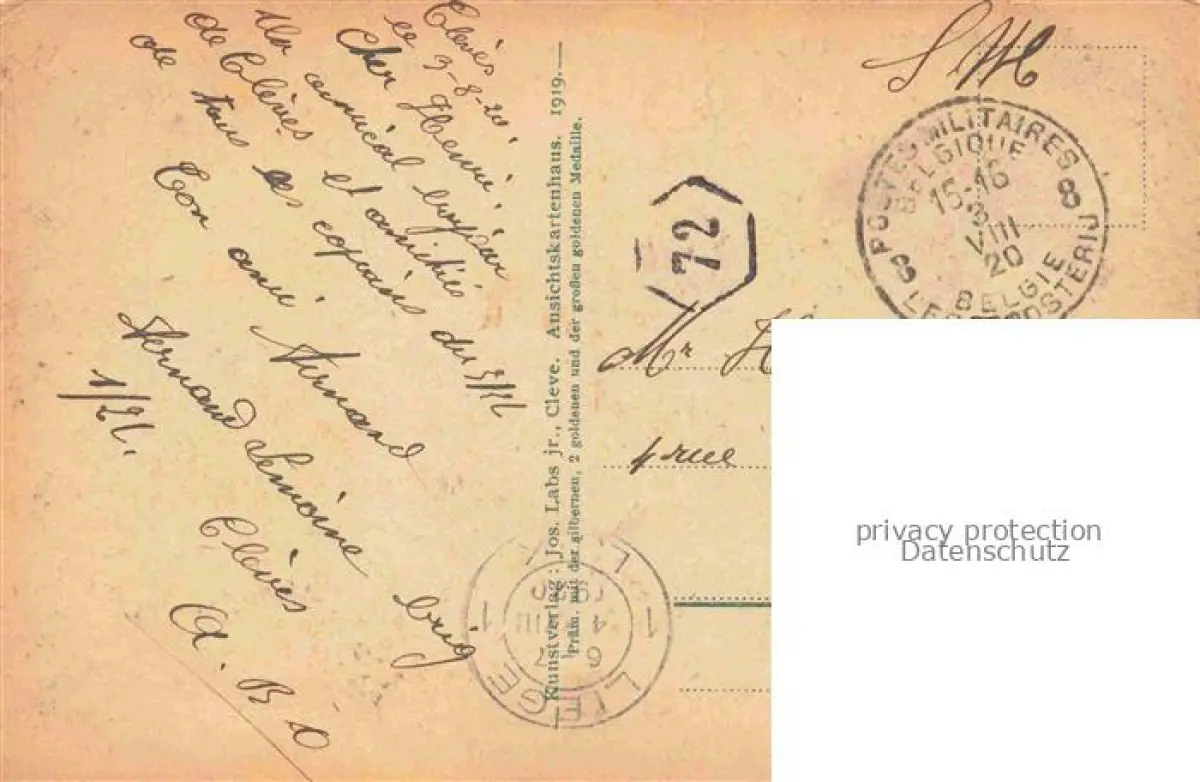 Clèves
ce 3-8-20
Cher Henri
Un amical bonjour
de Clèves et amitiés
de tous les copains du 3/2L
Ton ami Fernand
Fernand Lemoine brig
1/2L.
Clèves
A. B O
— Kunstverlag: Jos. Labs jr., Cleve. Ansichtskartenhaus. 1919.—
Präm. mit der silbernen, 2 goldenen und der großen goldenen Medaille.
S. M
POSTES MILITAIRES
BELGIQUE
8 8
15-16
3
VIII
20
BELGIE
72
Mr
rue
LIEGE
1 1
privacy protection
Datenschutz